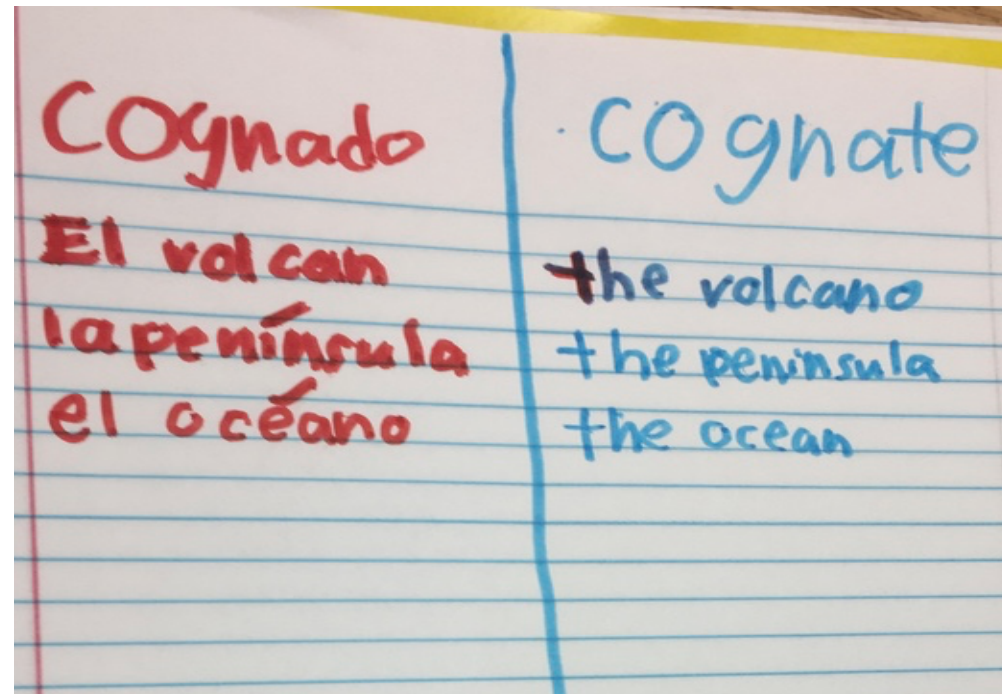 Cognado
El volcan
la península
el océano
cognate
the volcano
the peninsula
the ocean